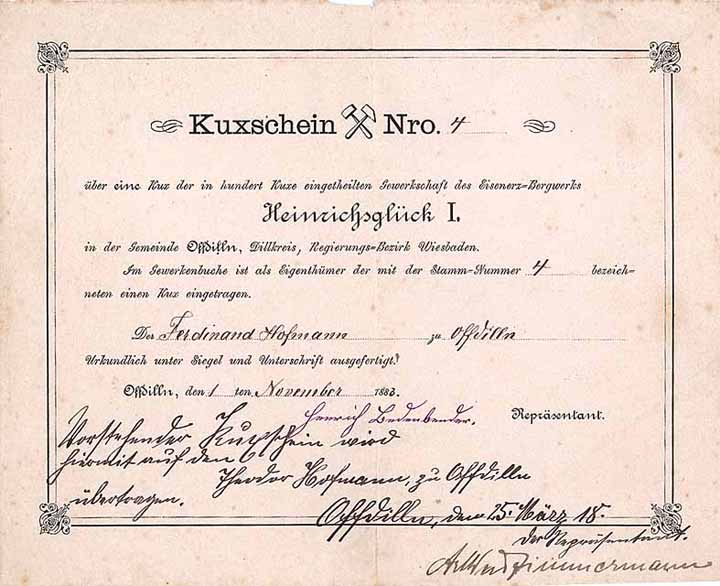 Kuxschein Nro. 4
über eine Kux der in hundert Kuxe eingetheilten Gewerkschaft des Eisenerz-Bergwerks
Heinrichsglück I.
in der Gemeinde Offdilln, Dillkreis, Regierungs-Bezirk Wiesbaden.
Im Gewerkenbuche ist als Eigenthümer der mit der Stamm-Nummer 4 bezeich-
neten einen Kux eingetragen.
Der Ferdinand Hofmann zu Offdilln
Urkundlich unter Siegel und Unterschrift ausgefertigt.
Offdilln, den 1 ten November 1883.
Henrich Bedenbender. Repräsentant.
Vorstehender Kuxschein wird
hiermit auf den
Theodor Hofmann, zu Offdilln
übertragen.
Offdilln, den 25. März 18.
der Repräsentant.
Zimmermann